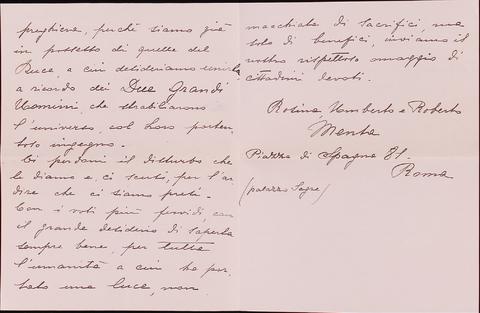 preghiera, perchè siamo già
in possesso di quella del
Duce, a cui desideriamo unirla
a ricordo dei Due Grandi
Uomini, che strabiliarono
l'universo, col loro porten,
toso ingegno.
Ci perdoni il disturbo che
le diamo e, ci scusi, per l'ar
dire che ci siamo presi.
Con i voti più fervidi, con
il grande desiderio di saperla
sempre bene, per tutta
l'umanità a cui ha por,
tato una luce, non
macchiata di sacrifici, ma
solo di benefici, inviamo il
nostro rispettoso omaggio di
cittadini devoti.
Rosina, Umberto e Roberto
Menta
Piazza di Spagna 81.
Roma
(palazzo)